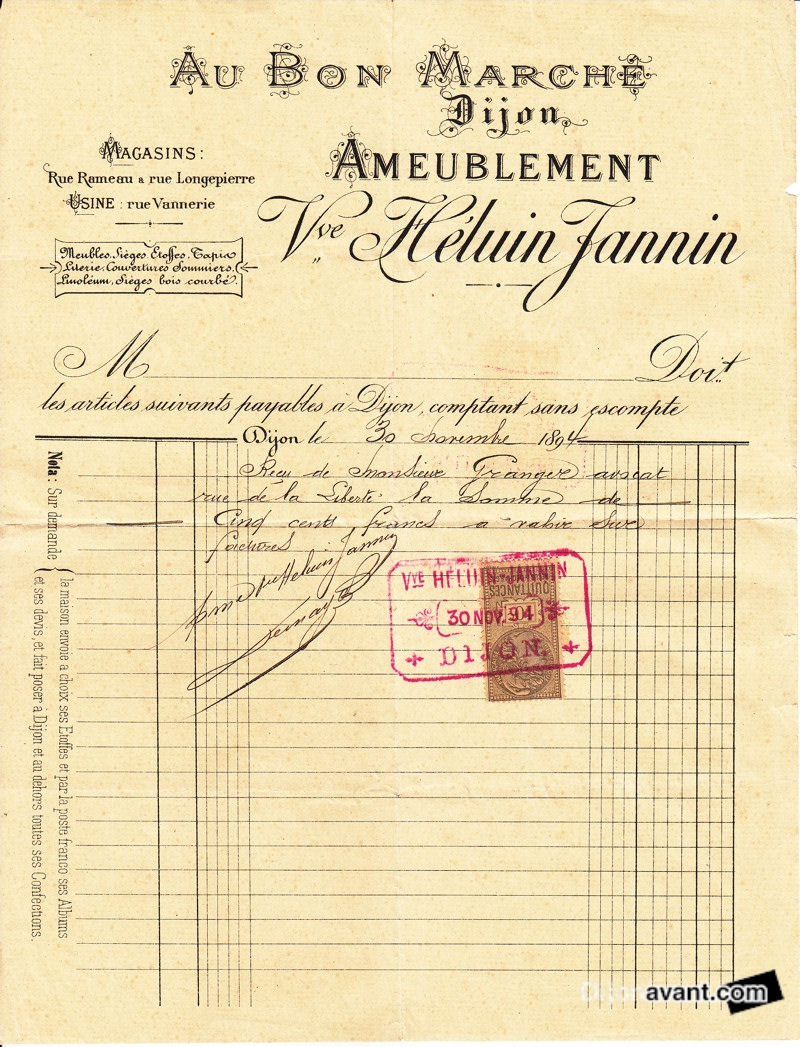 AU BON MARCHÉ
Dijon
AMEUBLEMENT
Vve Héluin Jannin
MAGASINS:
Rue Rameau & rue Longepierre
USINE : rue Vannerie
Meubles, Sièges Etoffes, Tapis
Literie, Couvertures Sommiers,
Linoléum, Sièges bois courbé.
M Doit
les articles suivants payables à Dijon, comptant sans escompte
Dijon le 30 novembre 1894
Reçu de Monsieur Granger avocat
rue de la Liberté la Somme de
Cinq cents francs à valoir sur
factures
Héluin Jannin
VVE HÉLUIN-JANNIN
30 NOV. 94
DIJON
QUITTANCES
10
Nota : Sur demande { la maison envoie à choix ses Etoffes et par la poste franco ses Albums
et ses devis, et fait poser à Dijon et au dehors toutes ses Confections.
Dijonavant.com